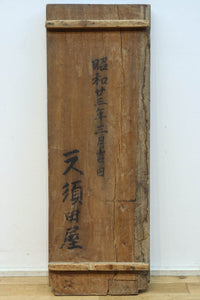 昭和廿三年三月吉日
天須田屋